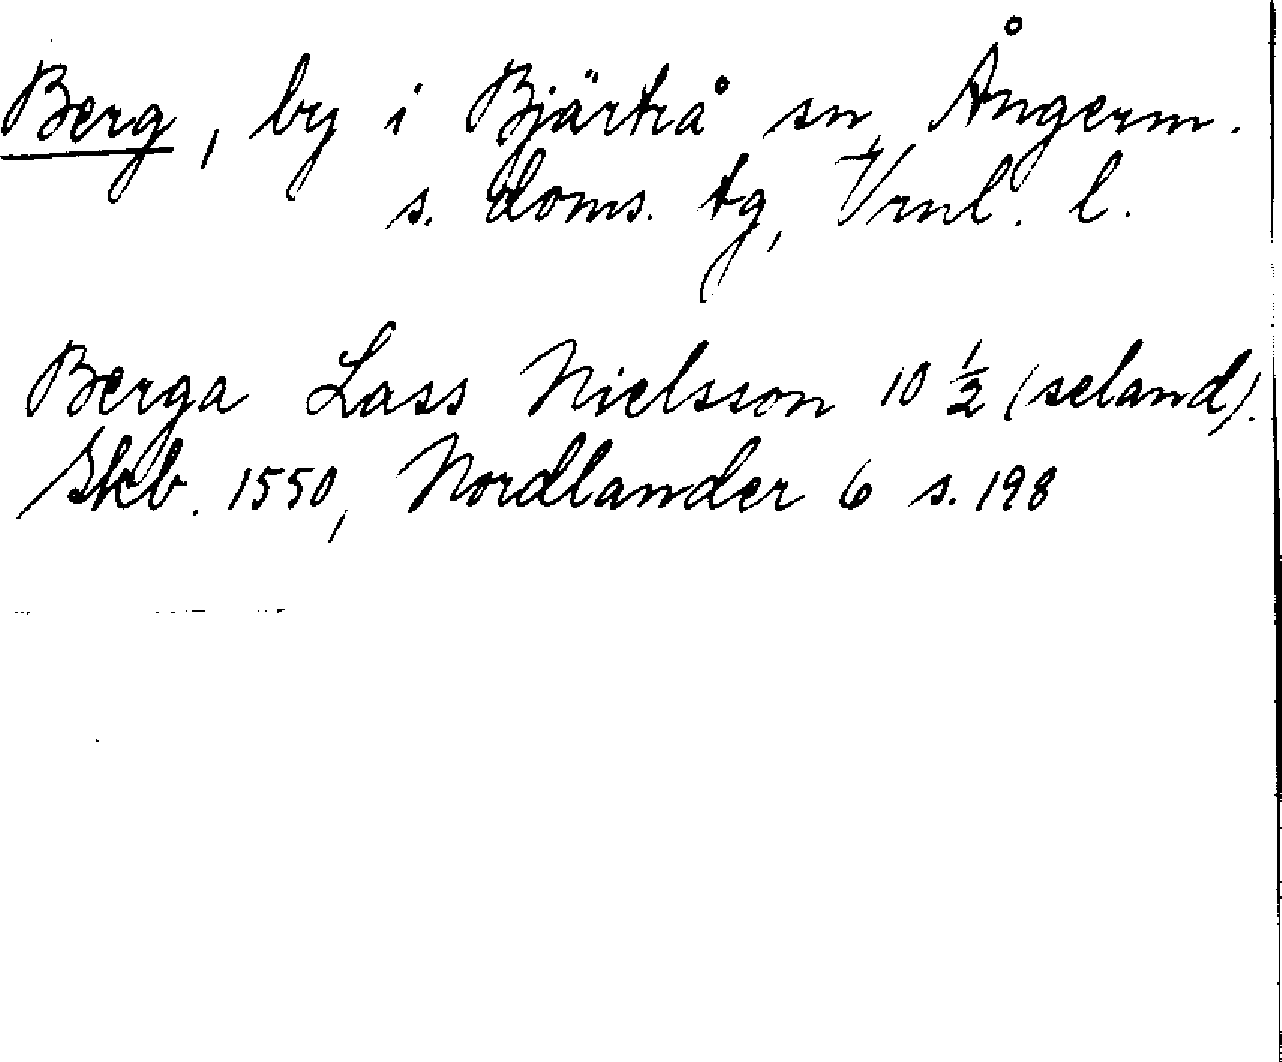 Berg, by i Bjärtrå sn, Ångerm.
s. doms. tg, Vrnl. l.
Berga Lass Nielsson 10 ½ (seland).
Skb. 1550, Nordlander 6 s. 198